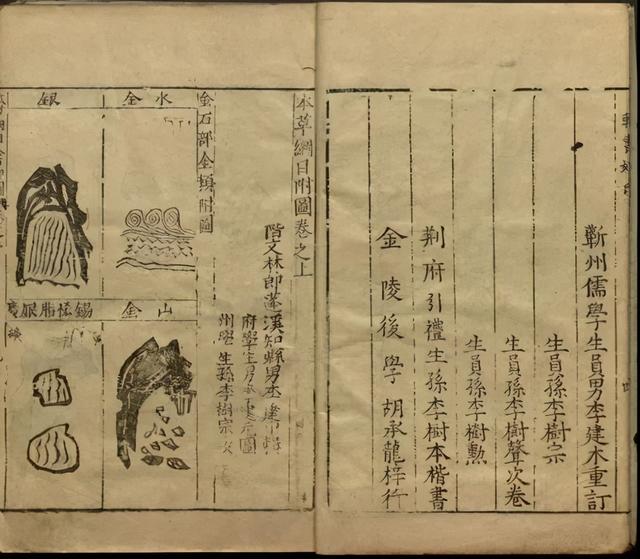 蘄州儒學生員男李建木重訂
生員孫李樹宗
生員孫李樹聲次卷
生員孫李樹勲
荆府引禮生孫李樹本楷書
金陵後學胡承龍梓行
本草綱目附圖卷之上
階文林郎蓬溪知縣男李建中輯
府學生男李建元圖
州學生孫李樹宗校
金石部金類附圖
水金
山金
銀
錫恡脂